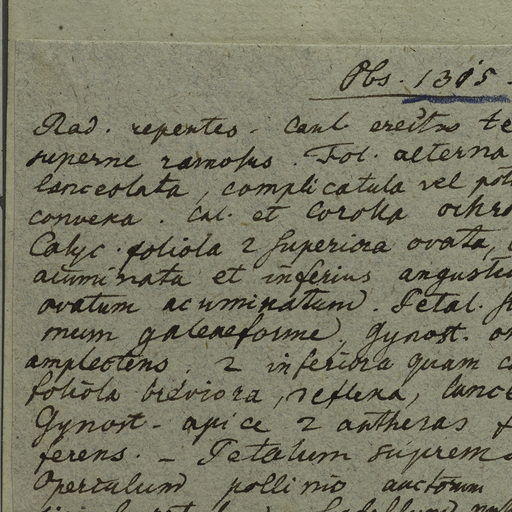 Obs. 1315.
Rad. repentes. Caul. erectus te
superne ramosus. Fol. alterna
lanceolata, complicatula vel pot
convexa. Cal. et Corolla ochro
Calyc. foliola 2 superiora ovata,
acuminata et inferius angustu
ovatum acuminatum. Petal. su
mum galeaeforme, Gynost. om
amplectens, 2 inferiora quam ca
foliola breviora, reflexa, lance
Gynost. apice 2 antheras f
ferens. _ Petalum suprem
Operculum pollinio auctorum